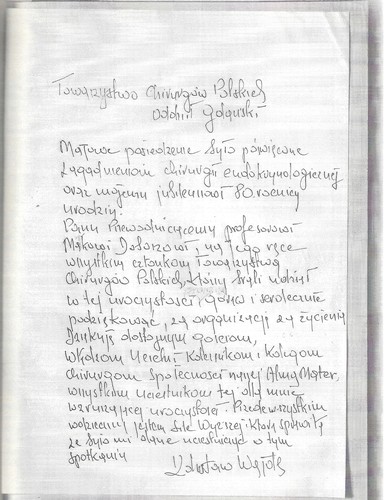 Towarzystwo Chirurgów Polskich
Oddział Gdański
Majowe posiedzenie było poświęcone
zagadnieniom chirurgii endokrynologicznej
oraz mojemu jubileuszowi 80. rocznicy
urodzin.
Panu Przewodniczącemu profesorowi
Makowi Doboszowi, na jego ręce
wszystkim członkom Towarzystwa
Chirurgów Polskich, którzy brali udział
w tej uroczystości, gorąco i serdecznie
podziękować, za organizację za życzenia
Dziękuję dostojnym gościom,
Władzom Uczelni Koleżankom i Kolegom
Chirurgom Społeczności naszej Alma Mater,
wszystkim uczestnikom tej dla mnie
wzruszającej uroczystości. Przede wszystkim
wdzięczny jestem Sile Wyższej, która sprawiła
że było mi dane uczestniczyć w tym
spotkaniu
Zdzisław Wajda